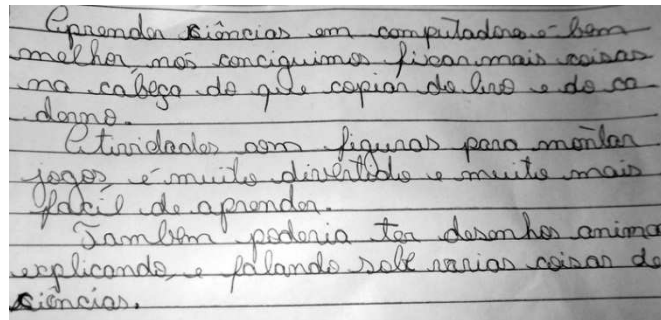 Aprender ciências em computadores é bem
melhor nós conciguimos fixar mais coisas
na cabeça do que copiar do livro e do ca
derno.
Atividades com figuras para montar
jogos é muito divertido e muito mais
fácil de aprender.
Tambem poderia ter desenhos anima
explicando, e falando sobre varias coisas de
ciências.